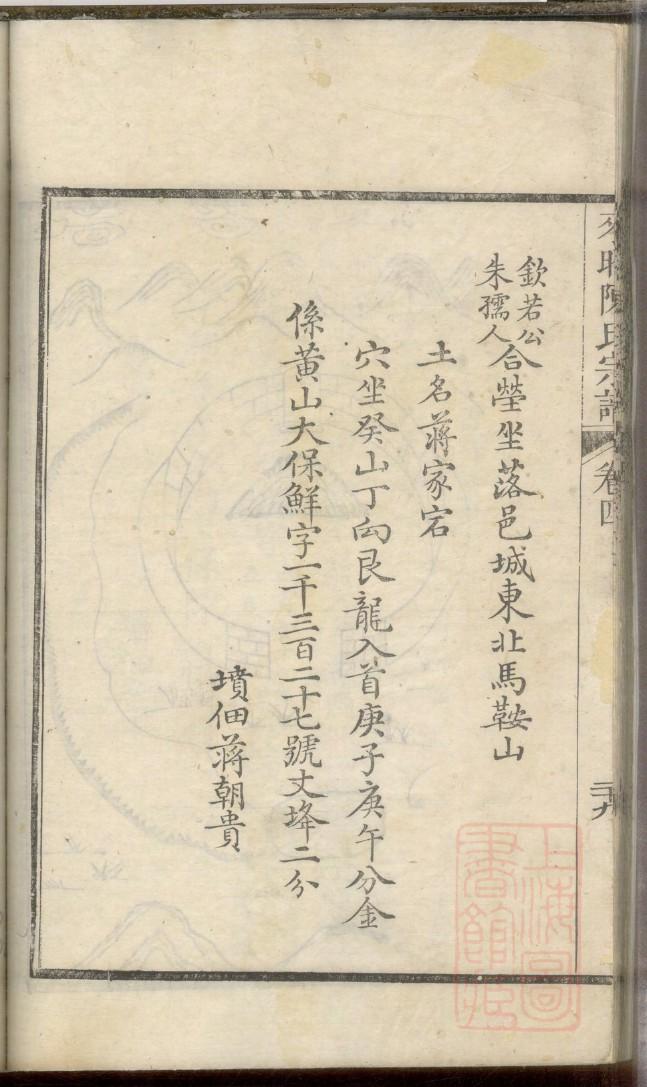 陳氏宗譜 卷四
欽若公
朱孺人
合塋坐落邑城東北馬鞍山
土名蔣家宕
穴坐癸山丁向艮龍入首庚子庚午分金
係黃山大保鮮字一千三百二十七號丈垰二分
墳佃蔣朝貴
上海圖書館藏